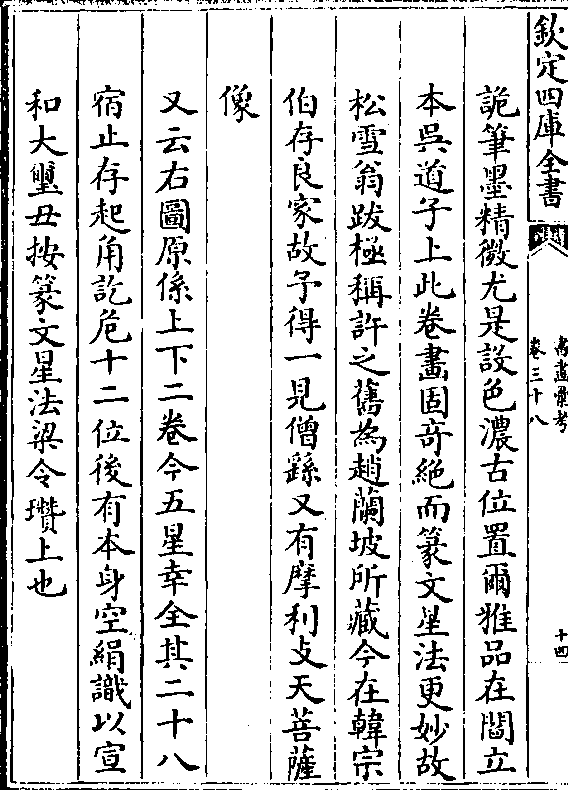 欽定四庫全書
書畫彙考
卷三十八
十四
詭筆墨精微尤是設色濃古位置爾雅品在閻立
本吳道子上此卷畫固奇絶而篆文星法更妙故
松雪翁跋極稱許之舊為趙蘭坡所藏今在韓宗
伯存良家故予得一見僧繇又有摩利攴天菩薩
像
又云右圖原係上下二卷今五星幸全其二十八
宿止存起角訖危十二位後有本身空絹識以宣
和大璽丑按篆文星法梁令瓚上也